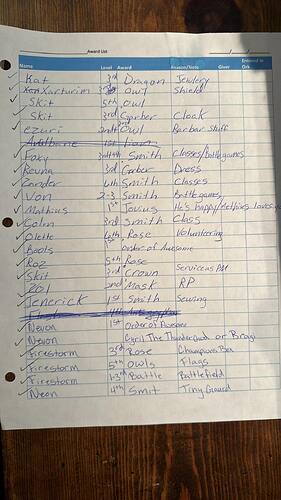 Award List
Name Level Award Reason/Note Giver Entered in Ork
Kat 3rd Dragon Jewlery
Xarturim Owl Shield
Skit 5th Owl
Skit 3rd Garber Clock
ezuri 2nd Owl Barbar Stuff
1st
Foxy Smith Classes/Battlegames
Reyna 3rd Garber Dress
Zander 6th Smith Classes
Von 2-3 Smith Battlegames
Mathius 1st Jovius He's happy/
Colin 3rd Smith Class
Olette 6th Rose Volunteering
Bools 1st order of Awesome
Roz 5th Rose
Skit 3rd Crown Service as PM
201 2nd Mask RP
Jenerick 1st Smith Sewing
4th
Nevon 1st Order of Awesom
Nevon Cyril The Thunder or Bragi
Firestorm 3rd Rose Champions
Firestorm 5th Owls Flags
Firestorm 1-3rd Battle Battlefield
Neon 4th Smit Tiny Gourd